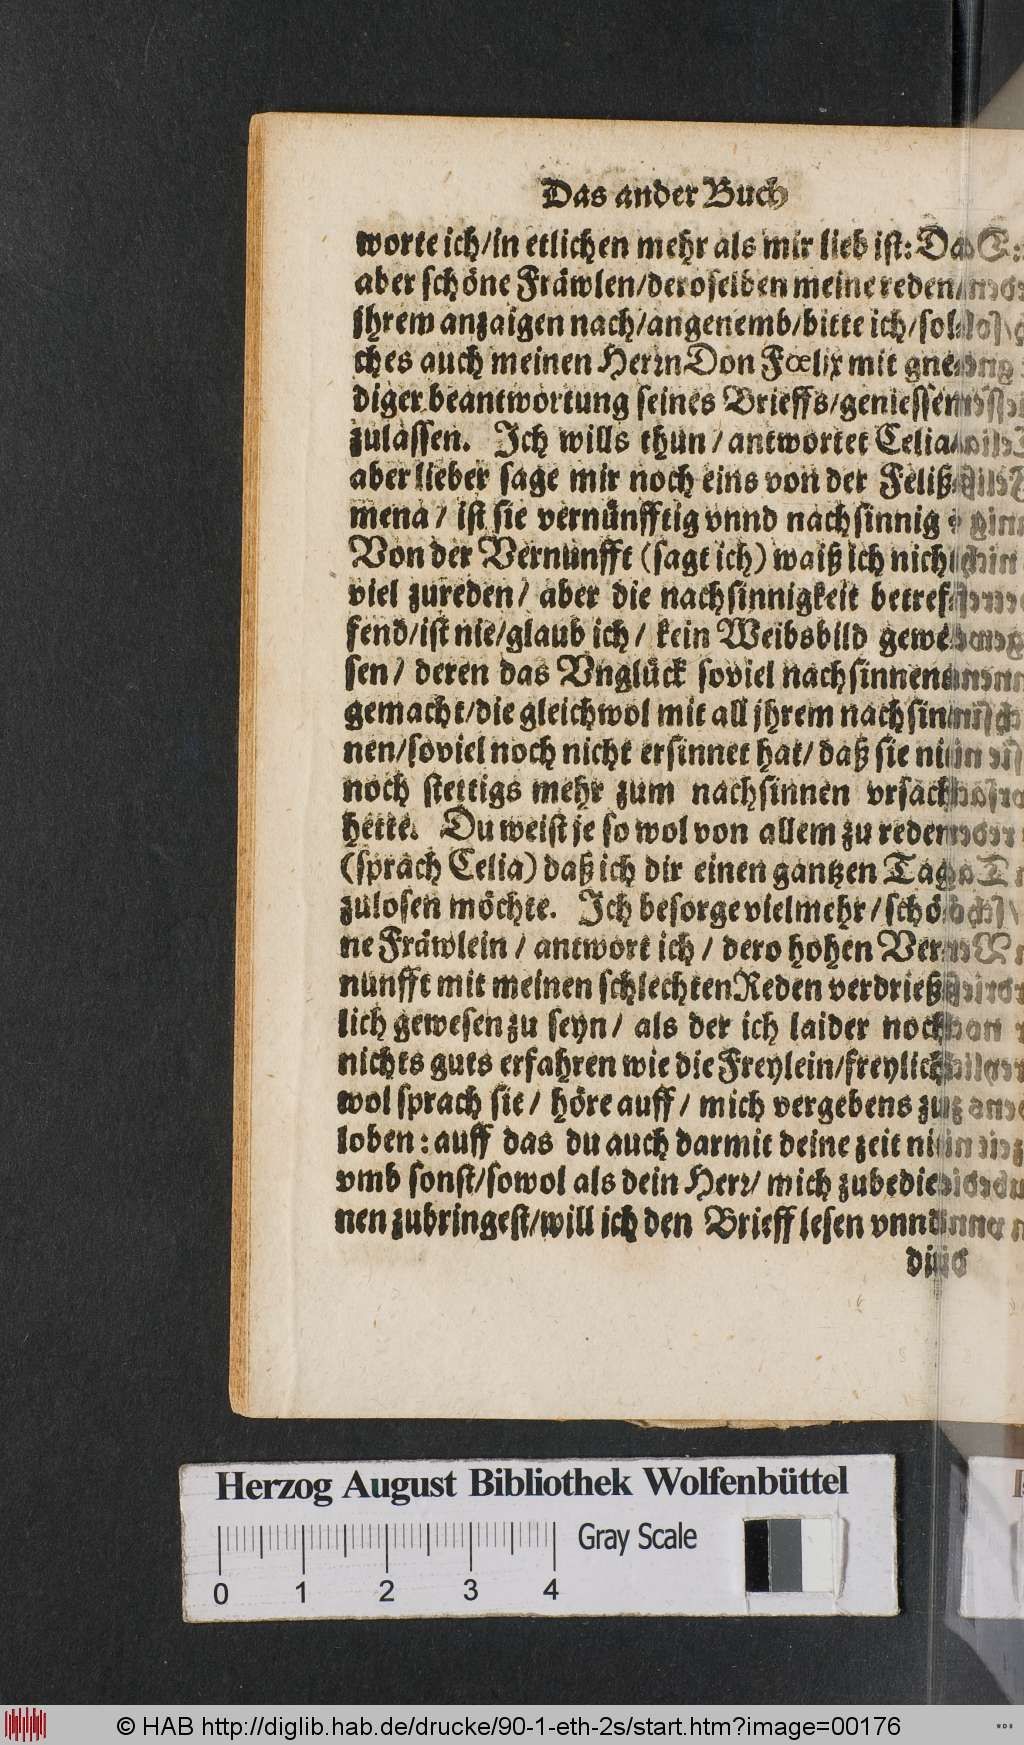 Das ander Buch
worte ich/in etlichen mehr als mir lieb ist: Da
aber schöne Fräwlen/deroselben meine reden/
jhrem anzaigen nach/angenemb/bitte ich/sol-
ches auch meinen Herrn Don Fœlix mit gne-
diger beantwortung seines Brieffs/geniessen
zulassen. Ich wills thun/antwortet Celia/
aber lieber sage mir noch eins von der Feliß-
mena/ ist sie vernünfftig vnnd nachsinnig?
Von der Vernunfft (sagt ich) waiß ich nich
viel zureden/ aber die nachsinnigkeit betref-
fend/ist nie/glaub ich/ kein Weibsbild gewe-
sen/ deren das Vnglück soviel nachsinnens
gemacht/die gleichwol mit all jhrem nachsin-
nen/soviel noch nicht ersinnet hat/ daß sie ni
noch stettigs mehr zum nachsinnen vrsach
hette. Du weist je so wol von allem zu reden
(sprach Celia) daß ich dir einen gantzen Tag
zulosen möchte. Ich besorge vielmehr/schö-
ne Fräwlein/ antwort ich/ dero hohen Ver-
nunfft mit meinen schlechten Reden verdrieß-
lich gewesen zu seyn/ als der ich laider noch
nichts guts erfahren wie die Freylein/freylich
wol sprach sie/ höre auff/ mich vergebens zu
loben: auff das du auch darmit deine zeit ni
vmb sonst/sowol als dein Herr/ mich zubedie-
nen zubringest/will ich den Brieff lesen vnnd
Herzog August Bibliothek Wolfenbüttel
Gray Scale
0 1 2 3 4
© HAB http://diglib.hab.de/drucke/90-1-eth-2s/start.htm?image=00176